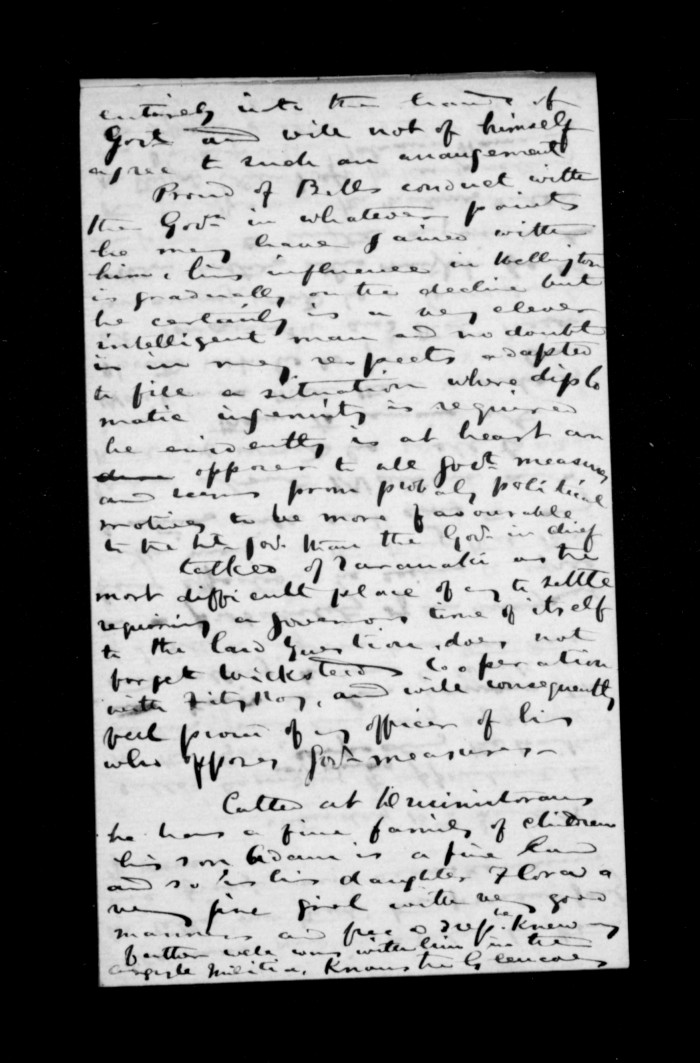 entirely into the hands of
Govt and will not of himself
agree to such an arrangement
Proud of Bells conduct with
the Govr in whatever points
he may have gained with
him, his influence in Wellington
is gradually on the decline but
he certainly is a very clever
intelligent man and no doubt
is in many respects adapted
to fill a situation where diplo
matic ingenuity is required
he evidently is at heart an
opposer to all Govt measures
and seems from probably political
motives to be more favourable
to the Govr than the Govr in chief
talked of Taranaki as the
most difficult place of any to settle
requiring a governors time of itself
to the land Question, does not
forget Wicksteeds Cooperation
with FitzRoy, and will consequently
feel proud of any officer of his
who opposes Govt measures
Called at
he has a fine family of children
his son Adam is a fine
and so is his daughter Flora a
very fine girl with very good
manners and free &amp; Knew my
father well was with him in the
Argyle Militia, Knows the Glencoes